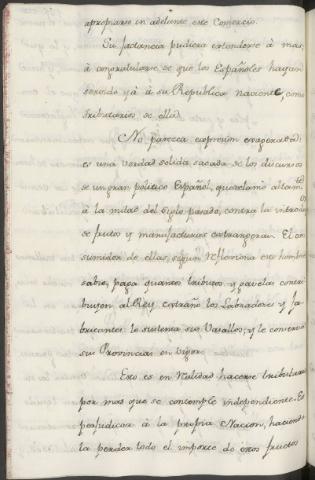 apropiarse en adelante este Comercio.
Su jactancia pudiera estenderse à mas,
à congratularse de que los Españoles hayan
servido yá à su Republica naciente, como
tributarios de ella.
No parezca expresion exagerada:
es una verdad solida sacada de los discursos
de un gran politico Español, que reclamó altamte
à la mitad del siglo pasado, contra la introdn
de frutos y manufacturas extrangeras. El con
sumidor de ellas, segun reflexiona este hombre
sabio, paga quantos tributos y gavelas contri
buyen al Rey extraño los Labradores y fa-
bricantes: le sustenta sus Vasallos, y le conserva
sus Provincias en vigor.
Esto es en realidad hacerse tributario
por mas que se contemple independiente. Es
perjudicar à la propia Nacion, haciendo
la perder todo el importe de esos frutos